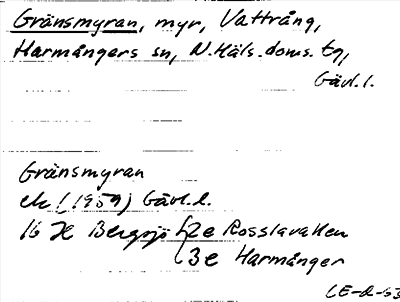 Gränsmyran, myr, Vattrång,
Harmångers sn, N.Häls.doms. tg,
Gävl.l.
Gränsmyran
ek! (1959) Gävl.l.
16 H Bergsjö 2e Rosslavallen
3e Harmånger